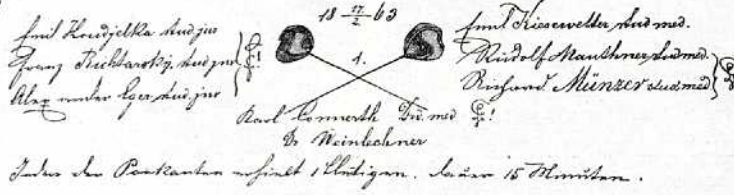 18 17/2 63
Emil Koudjelka stud jur
Franz Richtarsky, stud jur
Alexander Eger, stud jur
1.
Emil Kiesewetter stud med.
Rudolf Mauthner stud med.
Richard Münzer stud med
Karl Connerth stud med
Dr Weinlechner
Jeder der Paukanten erhielt 1 blutigen. Dauer 15 Minuten.